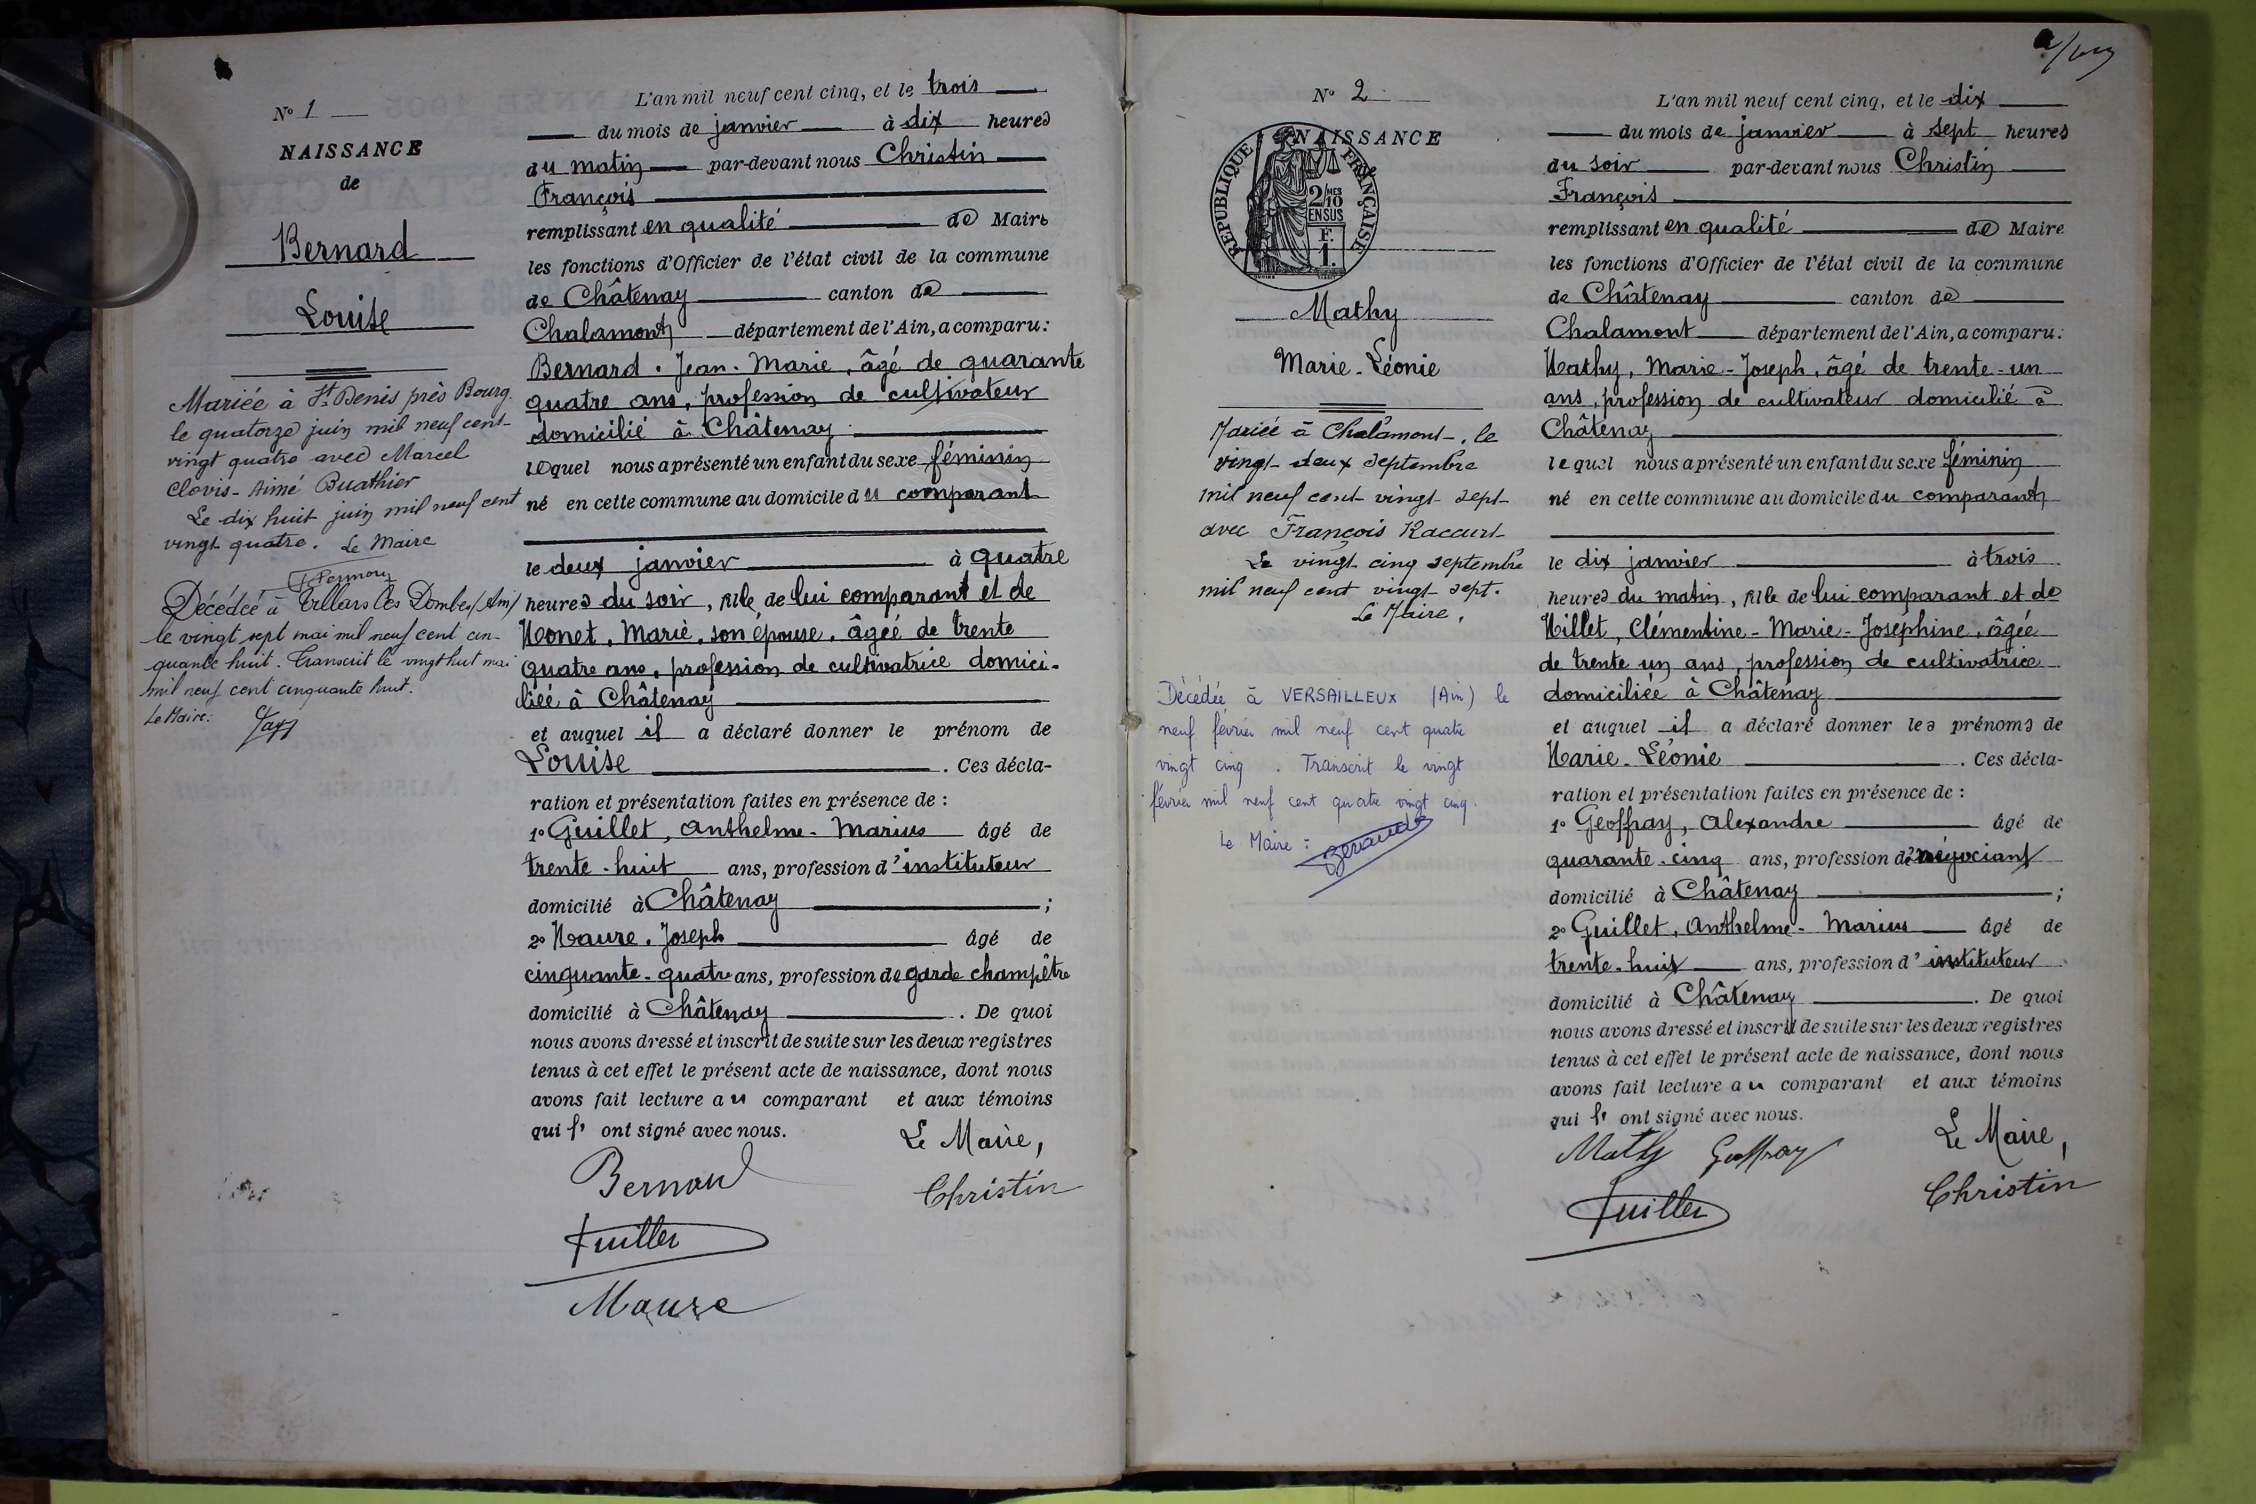 Nº 1
NAISSANCE
de
Bernard
Louise
Mariée à St Denis près Bourg
le quatorze juin mil neuf cent
vingt quatre avec Marcel
Clovis-Aimé Buathier
Le dix huit juin mil neuf cent
vingt quatre. Le Maire
Décédée à Villars les Dombes (Ain)
le vingt sept mai mil neuf cent cin-
quante huit. Transcrit le vingt huit mai
mil neuf cent cinquante huit.
Le Maire:
L'an mil neuf cent cinq, et le trois
du mois de janvier à dix heures
du matin par-devant nous Christin
François
remplissant en qualité de Maire
les fonctions d'Officier de l'état civil de la commune
de Châtenay canton de
Chalamont département de l'Ain, a comparu:
Bernard. Jean. Marie, âgé de quarante
quatre ans, profession de cultivateur
domicilié à Châtenay
lequel nous a présenté un enfant du sexe féminin
né en cette commune au domicile du comparant
le deux janvier à quatre
heures du soir, fille de lui comparant et de
Monet, Marie, son épouse, âgée de trente
quatre ans, profession de cultivatrice domici-
liée à Châtenay
et auquel il a déclaré donner le prénom de
Louise. Ces décla-
ration et présentation faites en présence de:
1º Guillet, Anthelme-Marius âgé de
trente-huit ans, profession d'instituteur
domicilié à Châtenay;
2º Maure. Joseph âgé de
cinquante-quatre ans, profession de garde champêtre
domicilié à Châtenay. De quoi
nous avons dressé et inscrit de suite sur les deux registres
tenus à cet effet le présent acte de naissance, dont nous
avons fait lecture au comparant et aux témoins
qui l' ont signé avec nous.
Le Maire,
Bernard
Christin
Guillet
Maure
Nº 2
NAISSANCE
de
REPUBLIQUE FRANÇAISE
2/10 MES
EN SUS
F.
1.
Mathy
Marie-Léonie
Mariée à Chalamont, le
vingt-deux septembre
mil neuf cent vingt sept
avec François Raccurt
Le vingt cinq septembre
mil neuf cent vingt sept.
Le Maire,
Décédée à VERSAILLEUX (Ain) le
neuf février mil neuf cent quatre
vingt cinq. Transcrit le vingt
février mil neuf cent quatre vingt cinq.
Le Maire:
L'an mil neuf cent cinq, et le dix
du mois de janvier à sept heures
du soir par-devant nous Christin
François
remplissant en qualité de Maire
les fonctions d'Officier de l'état civil de la commune
de Châtenay canton de
Chalamont département de l'Ain, a comparu:
Mathy, Marie-Joseph, âgé de trente-un
ans, profession de cultivateur domicilié à
Châtenay
lequel nous a présenté un enfant du sexe féminin
né en cette commune au domicile du comparant
le dix janvier à trois
heures du matin, fille de lui comparant et de
Millet, Clémentine-Marie-Joséphine, âgée
de trente un ans, profession de cultivatrice
domiciliée à Châtenay
et auquel il a déclaré donner les prénoms de
Marie-Léonie. Ces décla-
ration et présentation faites en présence de:
1º Geoffray, Alexandre âgé de
quarante-cinq ans, profession de négociant
domicilié à Châtenay;
2º Guillet, Anthelme-Marius âgé de
trente-huit ans, profession d'instituteur
domicilié à Châtenay. De quoi
nous avons dressé et inscrit de suite sur les deux registres
tenus à cet effet le présent acte de naissance, dont nous
avons fait lecture au comparant et aux témoins
qui l' ont signé avec nous.
Le Maire,
Mathy Geoffray
Christin
Guillet